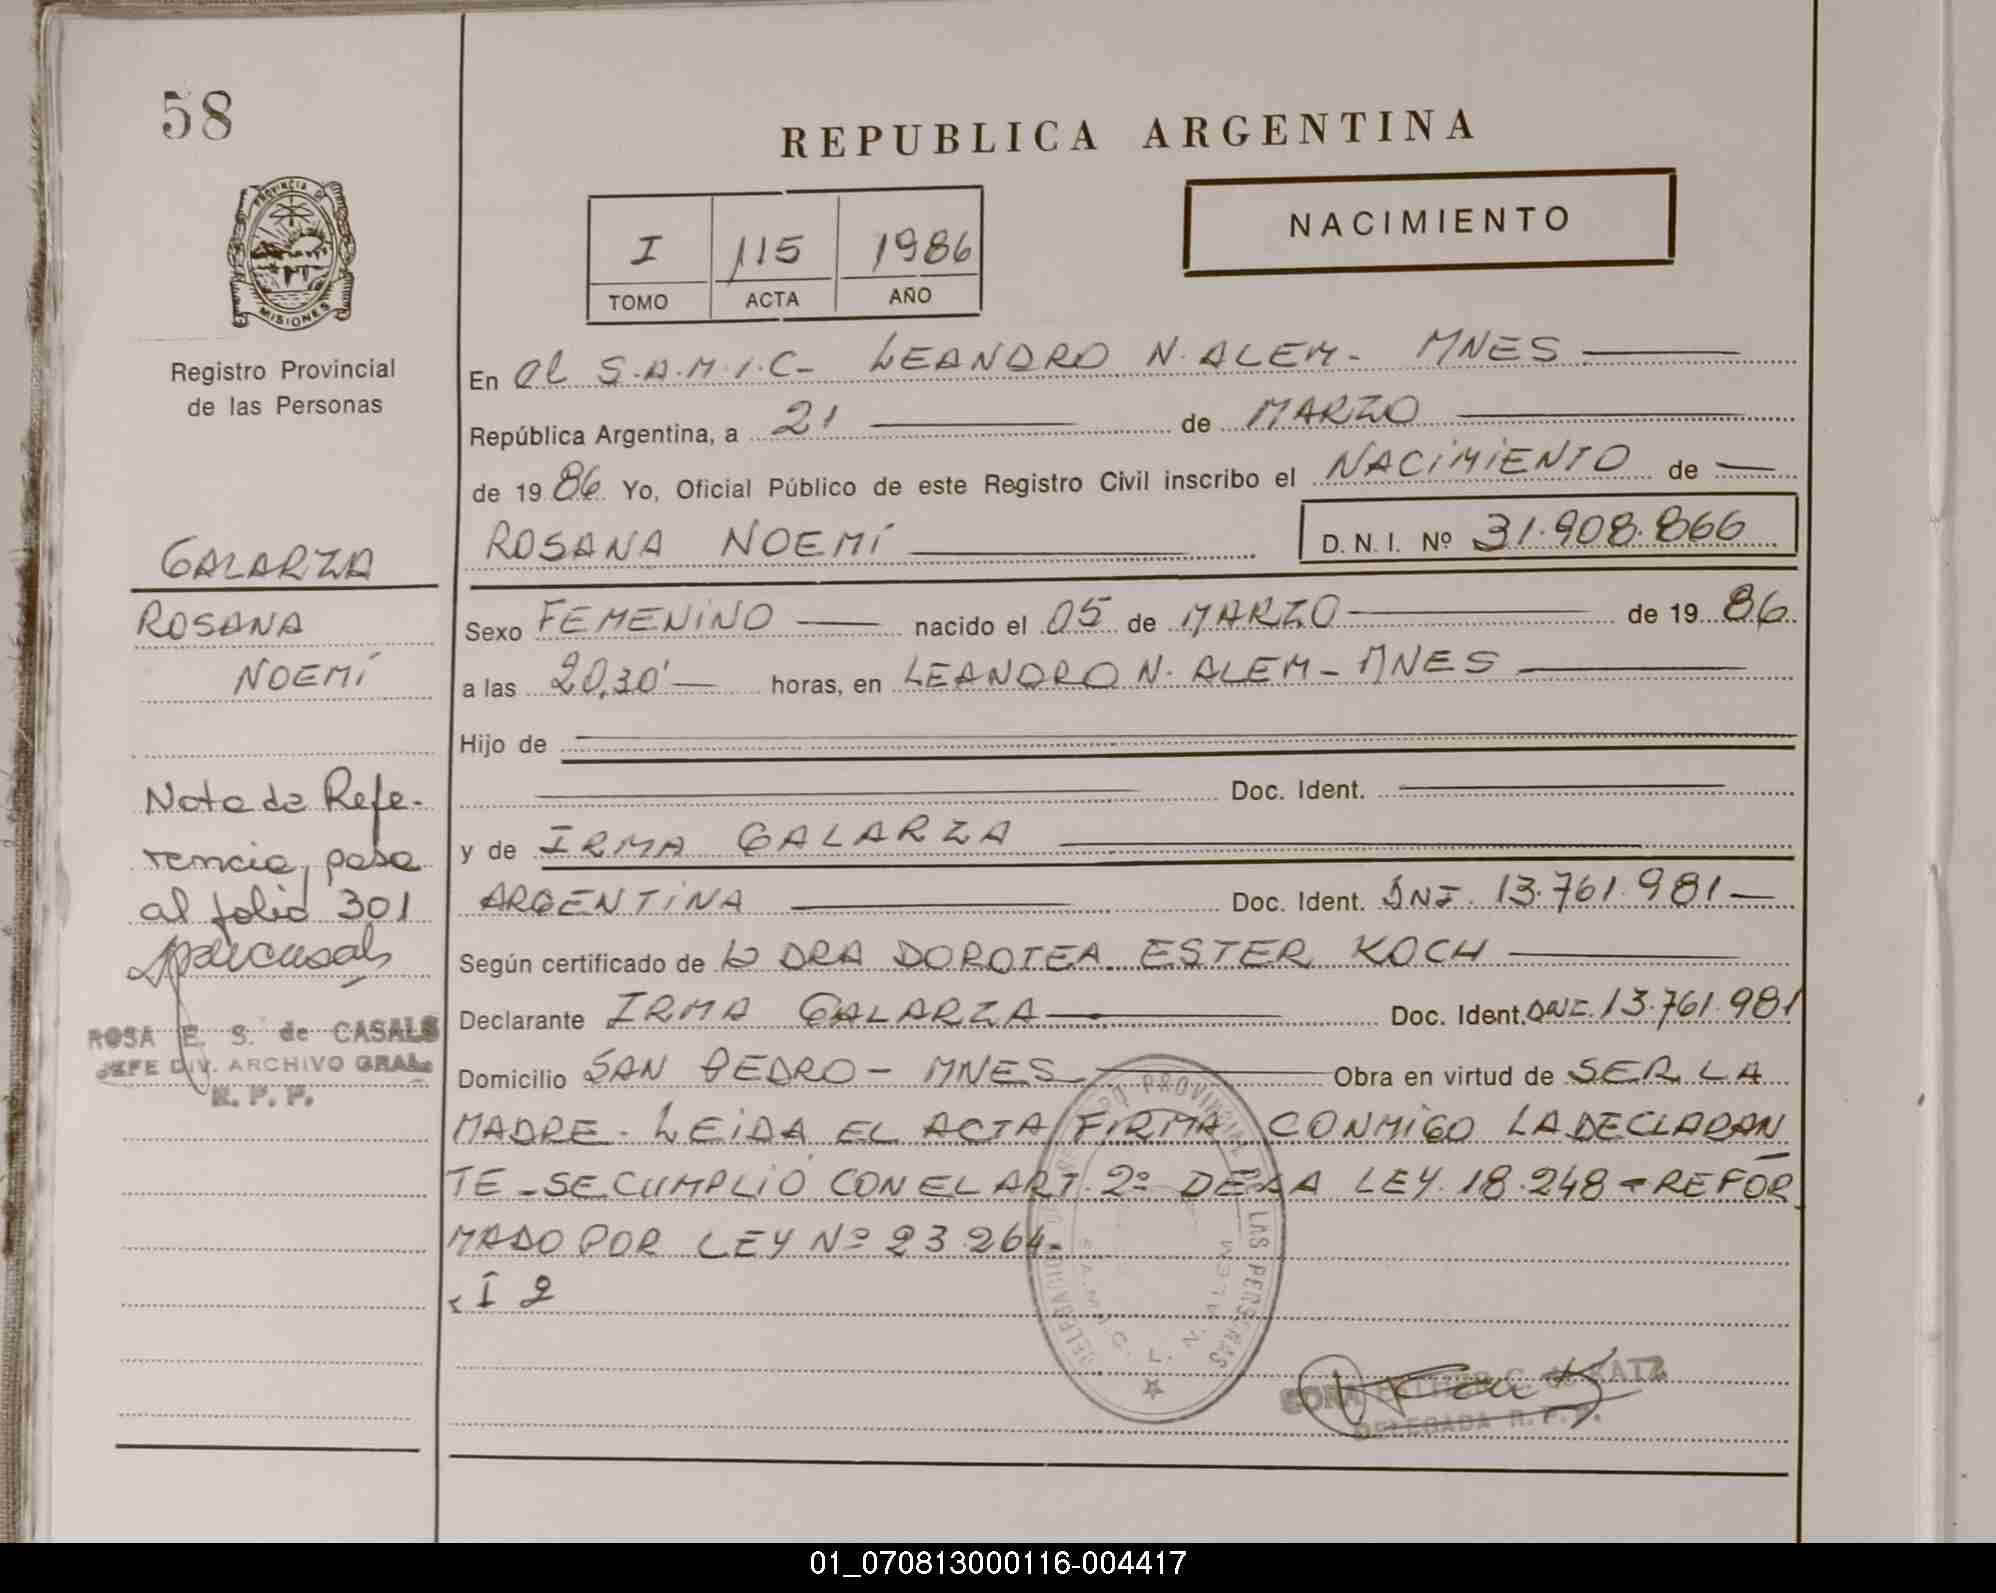 58
REPUBLICA ARGENTINA
NACIMIENTO
I 115 1986
TOMO ACTA AÑO
PROVINCIA DE
MISIONES
Registro Provincial
de las Personas
En el S.A.M.I.C- LEANDRO N. ALEM- MNES
República Argentina, a 21 de MARZO
de 1986. Yo, Oficial Público de este Registro Civil inscribo el NACIMIENTO de
ROSANA NOEMÍ D. N. I. Nº 31.908.866
GALARZA
ROSANA
NOEMÍ
Sexo FEMENINO nacido el 05 de MARZO de 1986
a las 20,30' horas, en LEANDRO N. ALEM - MNES
Hijo de
Doc. Ident.
y de IRMA GALARZA
ARGENTINA Doc. Ident. DNI. 13.761.981
Según certificado de la DRA DOROTEA ESTER KOCH
Declarante IRMA GALARZA Doc. Ident. DNI. 13.761.981
Domicilio SAN PEDRO - MNES Obra en virtud de SER LA
MADRE - LEIDA EL ACTA FIRMA CONMIGO LA DECLARAN
TE - SE CUMPLIÓ CON EL ART. 2º DE LA LEY 18.248 - REFOR
MADO POR LEY Nº 23.264-
I 2
Nota de Refe-
rencia, pasa
al folio 301
ROSA E. S. de CASALS
JEFE DIV. ARCHIVO GRAL.
R. P. P.
PROVINCIAL DE LAS PERSONAS
S.A.M.I.C. L. N. ALEM
de KATZ
DELEGADA R. P. P.
01_070813000116-004417